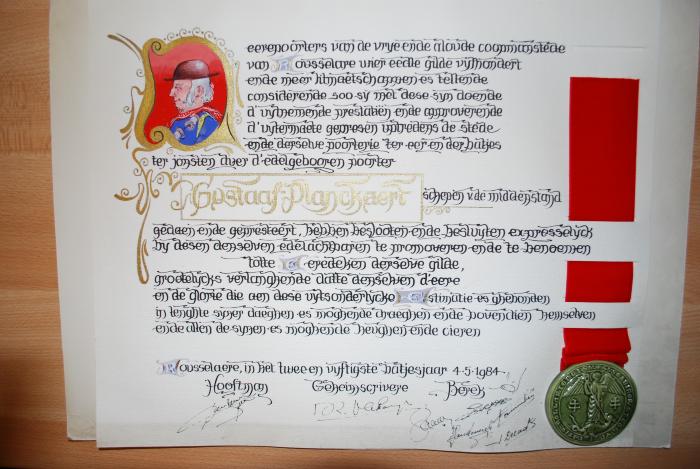 eerepoorters van de vrye ende aloude coopmanstede
van Rousselare vier eedle gilde vyfhondert
ende meer litmaetschappen es tellende
considerende soo sy met dese syn doende
d'uytnemende prestatien ende approverende
d'uyternaete gepresen optredens de stede
ende derselve poorterie ter eer en der
ter jonsten over d'edelgebooren poorter
Gustaaf Planckaert schepen v.de middenstand
gedaen ende gepresteert, hebben beslooten ende besluyten expresselyck
by desen denselven edelachbaren te promoveren ende te benoemen
totte eredeken derselve gilde,
grootelyks verlanghende datte denselven d'eere
en de glorie die aen dese uytsonderlycke stimatie es ghebonden
in lenghte syner daeghen es moghende draeghen ende bovendien hemselven
ende allen de synen es moghende heughen ende cieren
Rousselaere, in het twee en vyftigste jaar 4-5-1984
Hooftman Geheimscrivere Berek